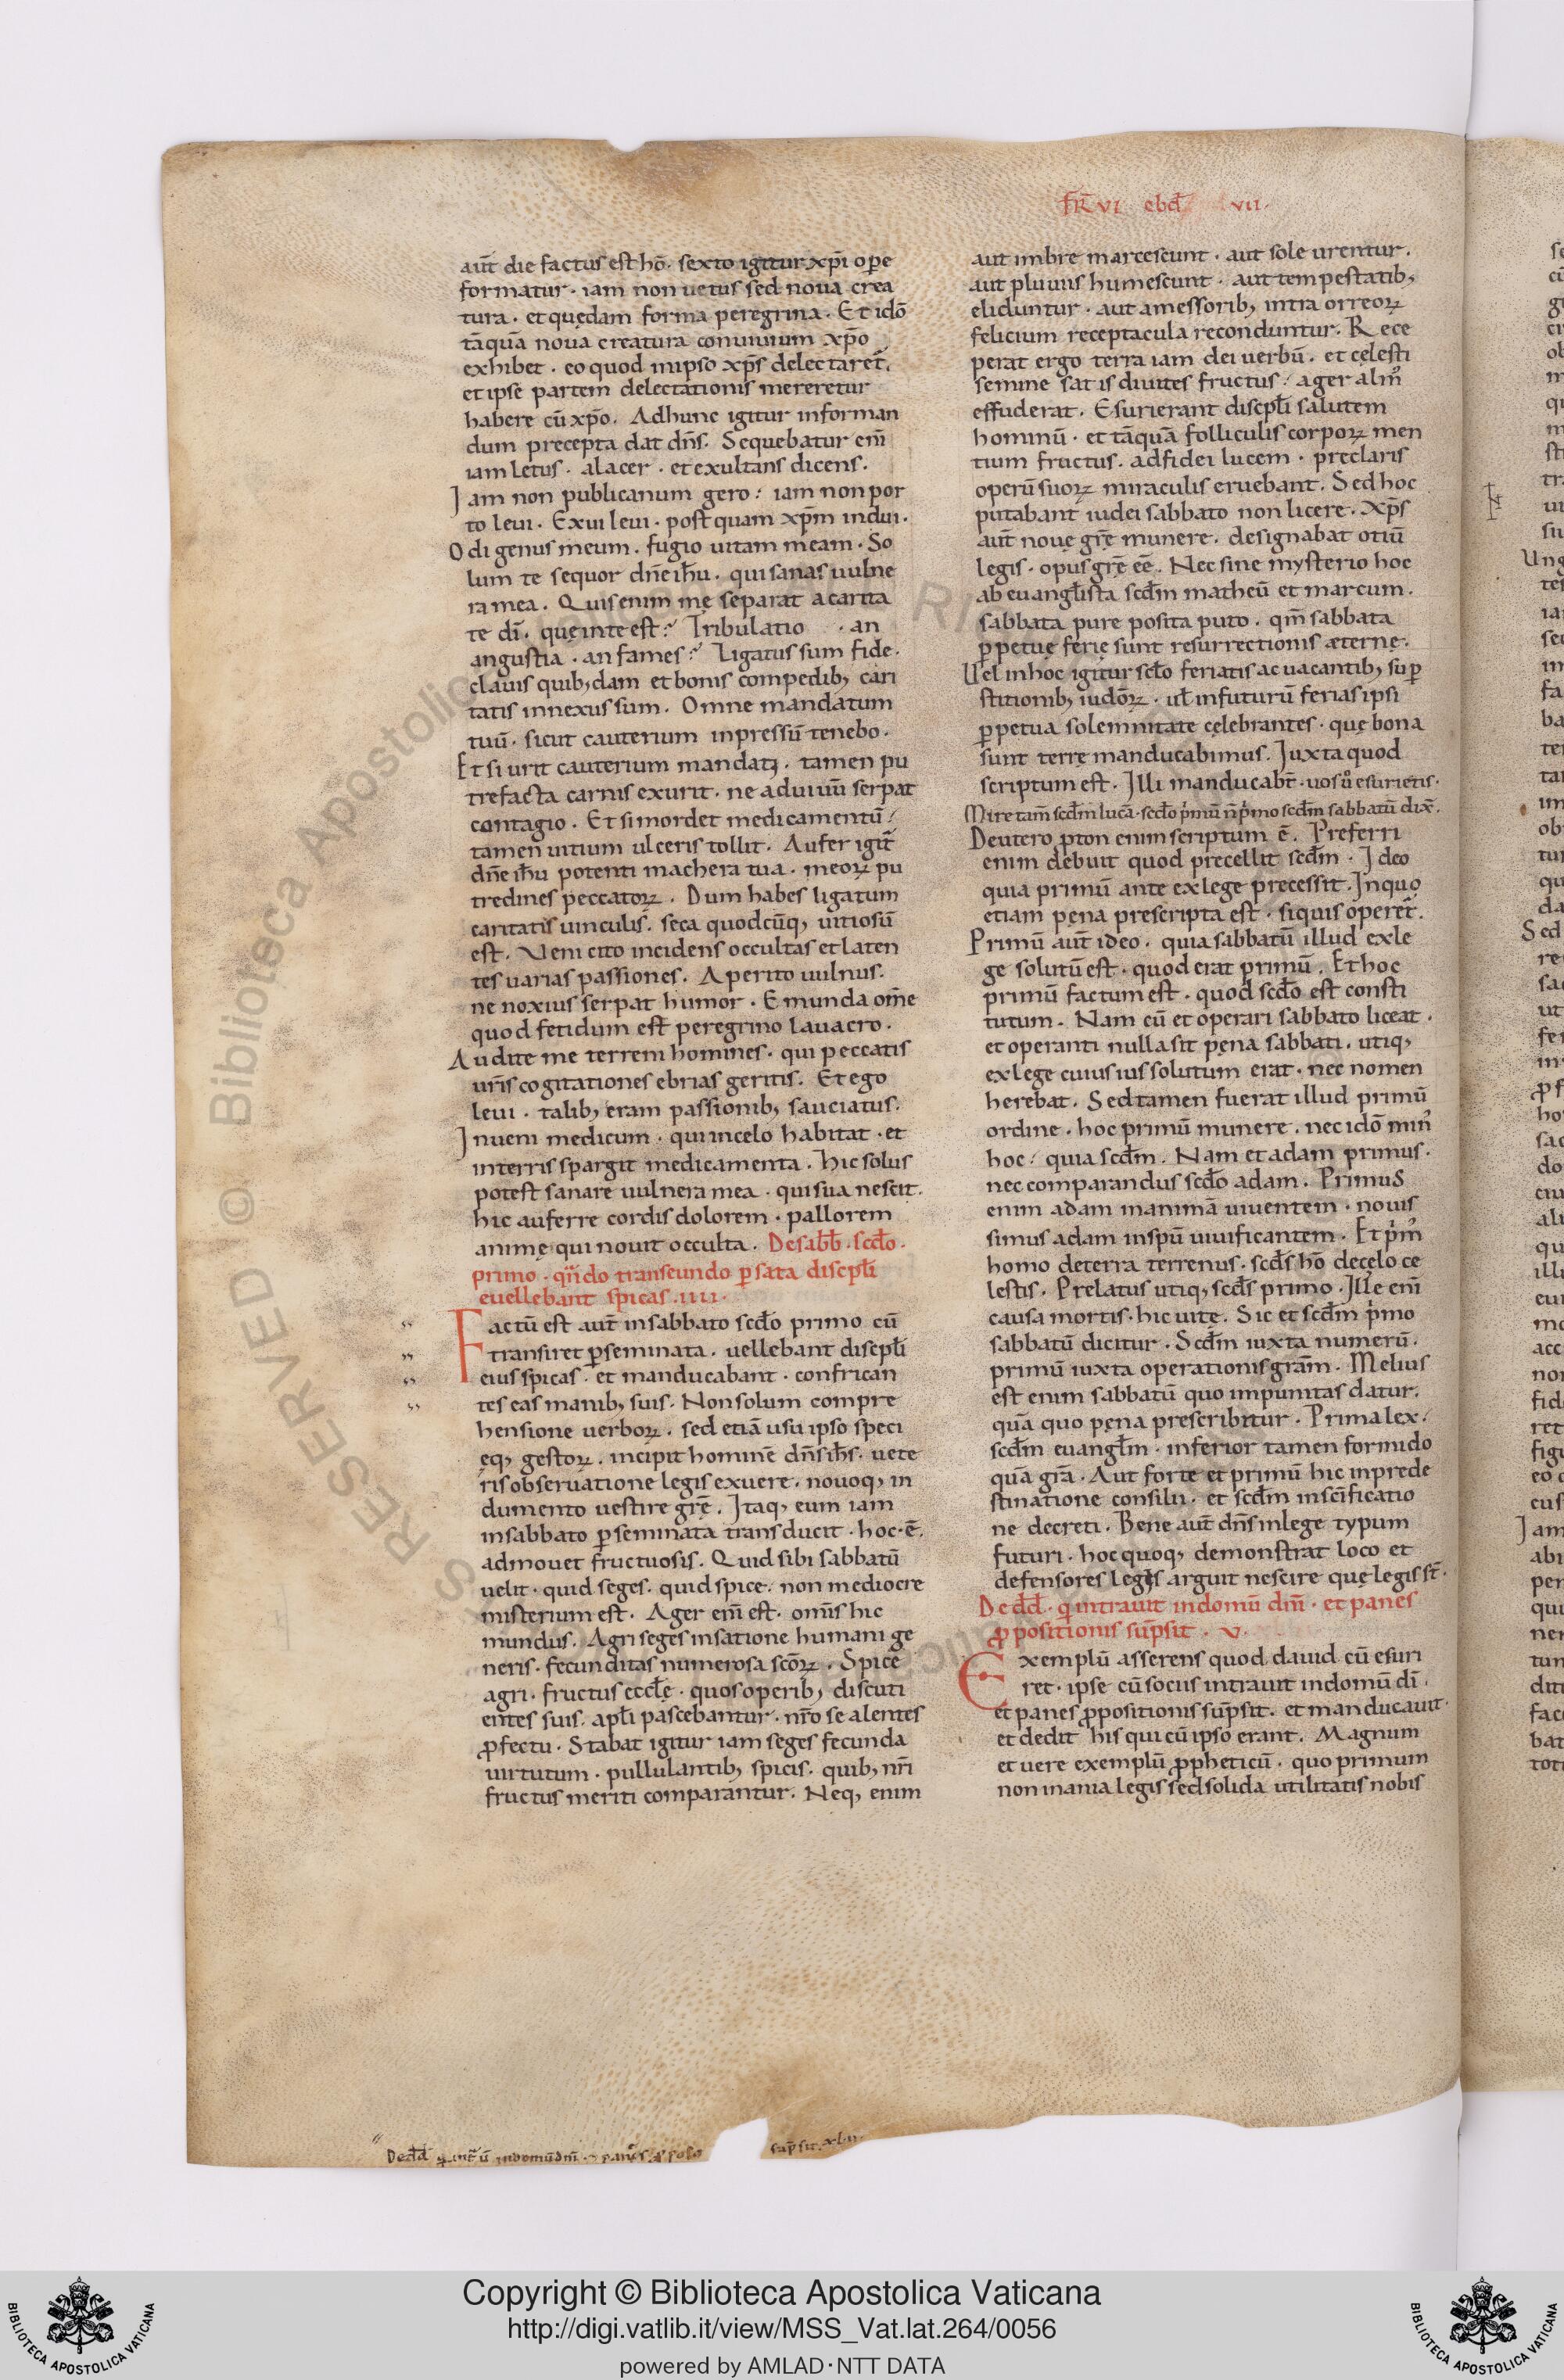 FR̄ VI ebd̄ VII.
aut̄ die factus est hō. sexto igitur xp̄i ope
formatur. iam non uetus sed noua crea
tura. et quędam forma peregrina. Et idō
tāquā noua creatura conuiuium xp̄o
exhibet. eo quod inipso xp̄s delectaret̄.
et ipse partem delectationis mereretur
habere cū xp̄o. Adhunc igitur informan
dum precepta dat dn̄s. Sequebatur em̄
iam letus. alacer. et exultans dicens.
Iam non publicanum gero: iam non por
to leui. Exui leui. post quam xp̄m indui.
Odi genus meum. fugio uitam meam. So
lum te sequor dn̄e ih̄u. qui sanas uulne
ra mea. Quis enim mę separat a carita
te dī. quę inte est? Tribulatio . an
angustia. an fames? Ligatus sum fide.
clauis quib; dam et bonis compedib; cari
tatis innexus sum. Omne mandatum
tuū. sicut cauterium inpressū tenebo.
Et si urit cauterium mandatꝫ. tamen pu
trefacta carnis exurit. ne ad uiuū serpat
contagio. Et si mordet medicamentū:
tamen uitium ulceris tollit. Aufer igit̄
dn̄e ih̄u potenti machera tua. meoꝝ pu
tredines peccatoꝝ. Dum habes ligatum
caritatis uinculis. seca quodcūq; uitiosū
est. Veni cito incidens occultas et laten
tes uarias passiones. Aperito uulnus.
ne noxius serpat humor. Emunda om̄e
quod fetidum est peregrino lauacro.
Audite me terreni homines. qui peccatis
ur̄is cogitationes ebrias geritis. Et ego
leui. talib; eram passionib; sauciatus.
Inueni medicum. qui incelo habitat. et
interris spargit medicamenta. hic solus
potest sanare uulnera mea. qui sua nescit.
hic auferre cordis dolorem. pallorem
animę qui nouit occulta. De sabb̄. scđo.
primo. qn̄do transeundo ꝑ sata discipl̄i
euellebant spicas. IIII.
Factū est aut̄ insabbato scđo primo cū
transiret ꝑ seminata. uellebant discipl̄i
eius spicas. et manducabant. confrican
tes eas manib; suis. Non solum compre
hensione uerboꝝ. sed etiā usu ipso speci
ęq; gestoꝝ. incipit hominē dn̄s ih̄s. uete
ris obseruatione legis exuere. nouoq; in
dumento uestire gr̄ę. Itaq; eum iam
insabbato ꝑ seminata transducit. hoc. ē.
admouet fructuosis. Quid sibi sabbatū
uelit. quid seges. quid spice. non mediocre
misterium est. Ager em̄ est. omīs hic
mundus. Agri seges insatione humani ge
neris. fecunditas numerosa scōꝝ. Spice
agri. fructus eccl̄ę. quos operib; discuti
entes suis. apl̄i pascebantur. nr̄o se alentes
ꝓfectu. Stabat igitur iam seges fecunda
uirtutum. pullulantib; spicis. quib; nr̄i
fructus meriti comparantur. Neq; enim
aut imbre marcescunt. aut sole urentur.
aut pluuiis humescunt. aut tempestatib;
eliduntur. aut amessorib; intra orreoꝝ
felicium receptacula reconduntur. Rece
perat ergo terra iam dei uerbū. et cęlesti
semine satis diuites fructus: ager alm̉
effuderat. Esurierant discipl̄i salutem
hominū. et tāquā folliculis corpoꝝ men
tium fructus. adfidei lucem. preclaris
operū suoꝝ miraculis eruebant. Sed hoc
putabant iudei sabbato non licere. Xp̄s
aut̄ nouę gr̄ę munere. designabat otiū
legis. opus gr̄ę eē. Nec sine mysterio hoc
ab euangl̄ista scđm matheū et marcum.
sabbata pure posita puto. qm̄ sabbata
ꝑpetuę ferię sunt resurrectionis æternę.
Vel inhoc igitur scl̄o feriatis ac uacantib; suꝑ
stitionib; iudōꝝ. ul̄ infuturū ferias ipsi
ꝑpetua solemnitate cęlebrantes. quę bona
sunt terrę manducabimus. Iuxta quod
scriptum est. Illi manducabt̄. uos u̾o esurietis.
Mire tam̄ scđm lucā. scđo pͥmū n̄ pͥmo scđm sabbatū dix̄.
Deutero ꝓton enim scriptum ē. Preferri
enim debuit quod precellit scđm. Ideo
quia primū ante ex lege precessit. Inquo
etiam pęna prescripta est. siquis operet̄.
Primū aut̄ ideo. quia sabbatū illud exle
ge solutū est. quod erat primū. Et hoc
primū factum est. quod scđo est consti
tutum. Nam cū et operari sabbato liceat.
et operanti nulla sit pęna sabbati. utiq;
ex lege cuius ius solutum erat. nec nomen
herebat. Sed tamen fuerat illud primū
ordine. hoc primū munere. nec idō min̉
hoc: quia scđm. Nam et adam primus.
nec comparandus scđo adam. Primus
enim adam inanimā uiuentem. nouis
simus adam inspū uiuificantem. Et pͥm̉
homo deterra terrenus. scđs hō decęlo ce
lestis. Prelatus utiq; scđs primo. Ille em̄
causa mortis. hic uitę. Sic et scđm pͥmo
sabbatū dicitur. Scđm iuxta numerū.
primū iuxta operationis gr̄am. Melius
est enim sabbatū quo impunitas datur.
quā quo pęna prescribitur. Prima lex:
scđm euangl̄m. inferior tamen formido
quā gr̄a. Aut forte et primū hic inprede
stinatione consilii. et scđm insc̄ificatio
ne decreti. Bene aut̄ dn̄s inlege typum
futuri. hoc quoq; demonstrat loco et
defensores legis arguit nescire quę legis st̄.
De dđ. q̇ intrauit indomū dn̄i. et panes
ꝓpositionis sūpsit. V.
Exemplū asserens quod dauid cū esuri
ret. ipse cū sociis intrauit indomū dī.
et panes ꝓpositionis sūpsit. et manducauit.
et dedit his qui cū ipso erant. Magnum
et uere exemplū ꝓpheticū. quo primum
non inania legis sed solida utilitatis nobis
Copyright © Biblioteca Apostolica Vaticana
http://digi.vatlib.it/view/MSS_Vat.lat.264/0056
powered by AMLAD · NTT DATA